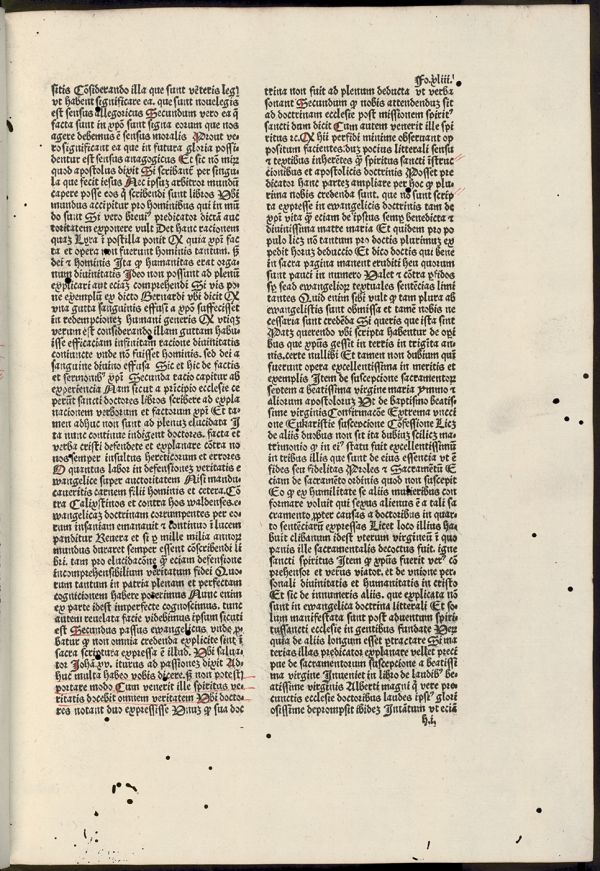 Fo.xliii.
sitis Cōsiderando illa que sunt vēteris legꝭ
vt habent significare ea. que sunt noue legis
est sensus allegoricus Secundum vero ea q̄
facta sunt in xpō sunt signa eorum que nos
agere debemus ē sensus moralis Prout ve-
ro significant ea que in futura gloria possi
dentur est sensus anagogicus Et sic nō miꝝ
quod apostolus dixit Si scribant̄ per singu-
la que fecit iesus Nec ipsuꝫ arbitror mundū
capere posse eos q̄ scribendi sunt libros Vbi
mundus accipitur pro hominibus qui in mū
do sunt Si vero breui᷒ predicator dictā auc
toritatem exponere vult Det hanc rationem
quaꝫ Lyra ī postilla ponit Qꝛ quia xp̄i fac
ta et opera non fuerunt hominis tantum. sꝫ
dei ⁊ hominis Ita ꝙ humanitas erat orga-
num diuinitatis Ideo non possunt ad plenū
explicari aut eciaꝫ comprehendi Si vis po-
ne exemplū ex dicto Bernardi vbi dicit Qꝛ
vna gutta sanguinis effusi a xpō suffecisset
in redempcionez humani generis Qꝛ vtiqꝫ
verum est considerando illam guttam habu-
isse efficaciam infinitam racione diuinitatis
coniuncte vnde nō fuisset hominis. sed dei a
sanguine diuino effusa Sic et hic de factis
et sermonibꝰ xp̄i Secunda racio capitur ab
experiencia Nam sicut a pricipio ecclesie ce
perūt sancti doctores libros scribere ad expla
nacionem verborum et factorum xp̄i Et ta-
men adhuc non sunt ad plenuꝫ elucidata I
ta nunc continue indigent doctores. facta et
verba cristi defendete et explanare cōtra no
uos semper insultus hereticorum et errores
O quantus labor in defensionez veritatis e
wangelice super auctoritatem Nisi mandu
caueritis carnem filii hominis et cetera. Cō
tra Calixtinos et contra hos waldenses. e-
wangelicaꝫ doctrinam corrumpentes per co-
rum insaniam emanauit ⁊ continuo ī lucem
panditur Reuera et si ꝓ mille milia annoꝝ
mundus duraret semper essent cōscribendi li
bri. tam pro elucidacōne ꝙ̄ eciam defensione
incomprehensibilium veritatum fidei Quo-
rum tantum in patria plenam et perfectam
cognicionem habere poterimus Nunc enim
ex parte idest imperfecte cognoscimus. tunc
autem reuelata facie videbimus ipsum sicuti
est Secundus passus ewangelicus vnde ꝓ-
batur ꝙ non omnia credenda explicite sunt ī
sacra scriptura expressa ē illud. Vbi salua-
tor Johā. xv. iturus ad passionez dixit Ad-
huc multa habeo vobis dicere. sꝫ non potestꝭ
portare modo Cum venerit ille spiritus ve-
ritatis docebit omnem veritatem Vbi docto-
res notant duo expressisse Vnuꝫ ꝙ sua doc
trina non fuit ad plenum deducta vt verba
sonant Secundum ꝙ nobis attendenduꝫ sit
ad doctrinam ecclesie post missionem spiritꝰ
sancti dum dicit Cum autem venerit ille spi
ritus ⁊c. Qꝛ hii perfidi minime obseruant op
positum facientes. duꝫ pocius litterali sensu
⁊ textibus inherētes ꝙ̄ spiritus sancti īstruc
cionibus et apostolicis doctrinis Posset pre
dicator hanc partez ampliare per hoc ꝙ plu
rima nobis credenda sunt. que nō sunt scrip
ta expresse in ewangelicis doctrinis tam de
xp̄i vita ꝙ̄ eciam de ipsius semꝑ benedicta ⁊
diuinissima matre maria Et quidem pro po
pulo licꝫ nō tantum pro doctis plurimuꝫ ex
pedit horuꝫ deduccio Et dico doctis qui bene
in sacra pagina manent eruditi heu quorum
sunt pauci in numero Valet ⁊ cōtra ꝑfidos
sꝫ sead ewangelioꝝ textuales sentēcias limi
tantes Quid enim sibi vult ꝙ tam plura ab
ewangelistis sunt obmissa et tamē nobis ne
cessaria sunt credēda Si queris que ista sint
Patꝫ querendo vbi scripta habentur de oꝑi
bus que xpūs gessit in terris in trigīta an-
nis. certe nullibi Et tamen non dubium quī
fuerunt opera excellentissima in meritis et
exemplis Item de suscepcione sacramentoꝝ
septem a beatissima virgine maria ymmo ⁊
aliorum apostolorum Vt de baptismo beatis-
sime virginis Confirmacōe Extrema vncci
one Eukaristie suscepcione Cōfessione Licꝫ
de aliis duobus non sit ita dubiuꝫ scilicꝫ ma-
trimonio ꝙ in eiꝰ statu fuit excellentissimū
in tribus illis que sunt de eius essencia vt ē
fides seu fidelitas Proles ⁊ Sacramētū E
ciam de sacramēto ordinis quod non suscepit
Eo ꝙ ex humilitate se aliis mulieribus con
formare voluit qui sexus alienus ē a tali sa
cramento ꝓpter causas a doctoribus in quar-
to sentēciarū expressas Licet loco illius ha-
buit clibanum idest vterum virgineū ī quo
panis ille sacramentalis decoctus fuit. igne
sancti spiritus Item ꝙ xpūs fuerit verꝰ cō
prehensor et verus viator. et de vnione per-
sonali diuinitatis et humanitatis in cristo
Et sic de innumeris aliis. que explicata nō
sunt in ewangelica doctrina litterali Et so-
lum manifestata sunt post aduentum spiri-
tussancti ecclesie in gentibus fundate Ver
quia de aliis longum esset ꝑtractare Si ma
terias illas predicator explanare vellet preci
pue de sacramentorum suscepcione a beatissi
ma virgine Inueniet in libro de laudibꝰ be-
atissime virginis Alberti magni ꝙ vere pre-
cunctis ecclesie doctoribus laudes ipsiꝰ glori
osissime depromsit ibidez Intātum vt eciā
h.i.